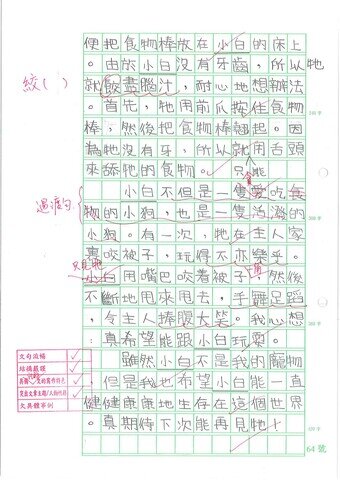 便把食物棒放在小白的床上
。由於小白沒有牙齒,所以牠
絞( )
就餃盡腦汁,耐心地想辦法
。首先,牠用前爪按住食物
棒,然後把食物棒翹起。因
為牠沒有牙,所以就用舌頭
來舔牠的食物。
只能
過渡句
小白不但是一隻愛吃食
物的小狗,也是一隻活潑的
小狗。有一次,牠在主人家
裏咬被子,玩得不亦樂乎。
只見牠
小白用嘴巴咬着被子,然後
不斷地甩來甩去,手舞足蹈
,令主人捧腹大笑。我心想
:真希望能跟小白玩耍。
雖然小白不是我的寵物
,但是我也希望小白能一直
健健康康地生存在這個世界
。真期待下次能再見牠!
文句流暢
結構嚴謹
突出文章主題/人物性格
欠具體事例
64號